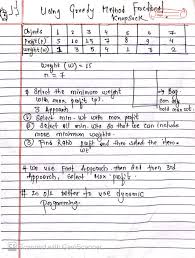 Using Greedy Method Fractional
Knapsack
Objects 1 2 3 4 5 6 7
Profit(P) 5 10 15 7 8 9 4
weight(w) 1 3 5 4 1 3 2
weight (W) = 15
n = 7
# Select the minimum weight → Bag
with max profit (p). Bag
3 Approach hold max wt
① Select min. wt with max profit
② Select all min wts so that we can include
more minimum weights.
③ Find Ratio profit and then select the
# We use First Approach then and then 3rd
Approach, select Max. profit.
# In 0/1 better to use dynamic
Programming.
Scanned with CamScanner